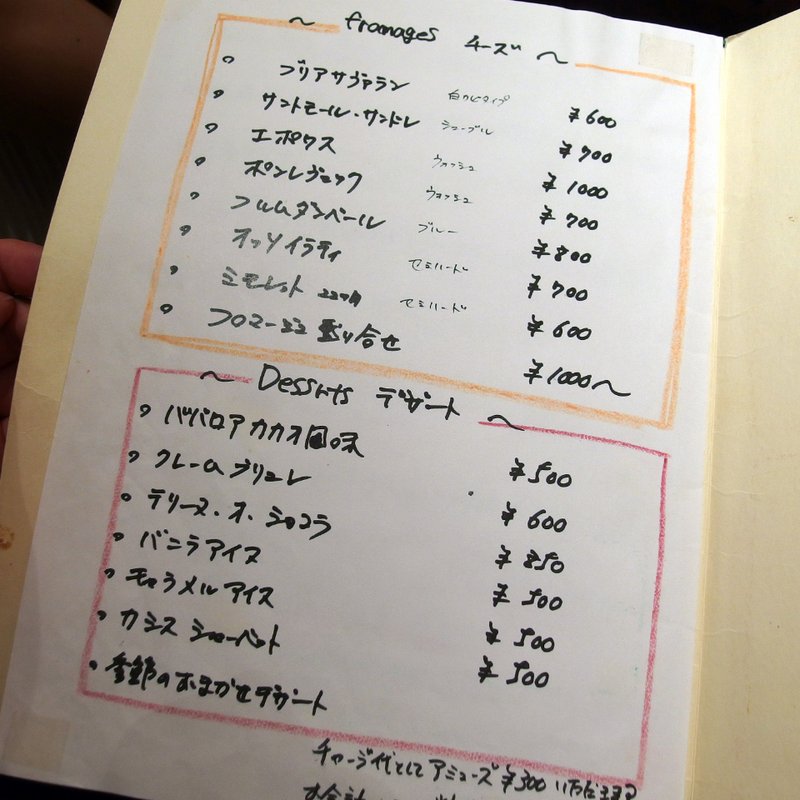 ~ fromages チーズ ~
・ブリアサヴァラン 白カビタイプ ¥600
・サントモール・サンドレ シェーブル ¥700
・エポワス ウォッシュ ¥1000
・ポンレヴェック ウォッシュ ¥700
・フルムダンベール ブルー ¥800
・オッソイラティ セミハード ¥700
・ミモレット 22ヶ月 セミハード ¥600
・フロマージュ盛り合せ ¥1000~
~ Desserts デザート ~
・ババロア カカオ風味 ¥500
・クレームブリュレ ¥600
・テリーヌ・オ・ショコラ ¥850
・バニラアイス ¥500
・キャラメルアイス ¥500
・カシスシャーベット ¥500
・季節のおまかせデザート
チャージ代としてアミューズ¥300いただきます